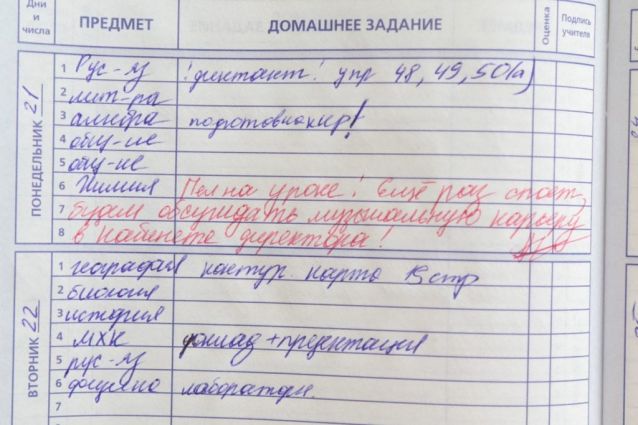 Дни и числа ПРЕДМЕТ ДОМАШНЕЕ ЗАДАНИЕ Оценка Подпись учителя
ПОНЕДЕЛЬНИК 21
1 Рус-яз !диктант! упр 48, 49, 50(а)
2 лит-ра
3 алгебра подготовка к кр!
4 общ-ие
5 общ-ие
6 Химия Пел на уроке! Ещё раз споёт,
7 будем обсуждать музыкальную карьеру
8 в кабинете директора!
ВТОРНИК 22
1 география контур. карта стр
2 биология
3 история
4 МХК доклад+презентация
5 рус-яз
6 физика лаборатор.
7